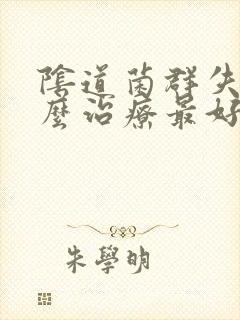 陰道菌群失
麼治療最好
朱學明